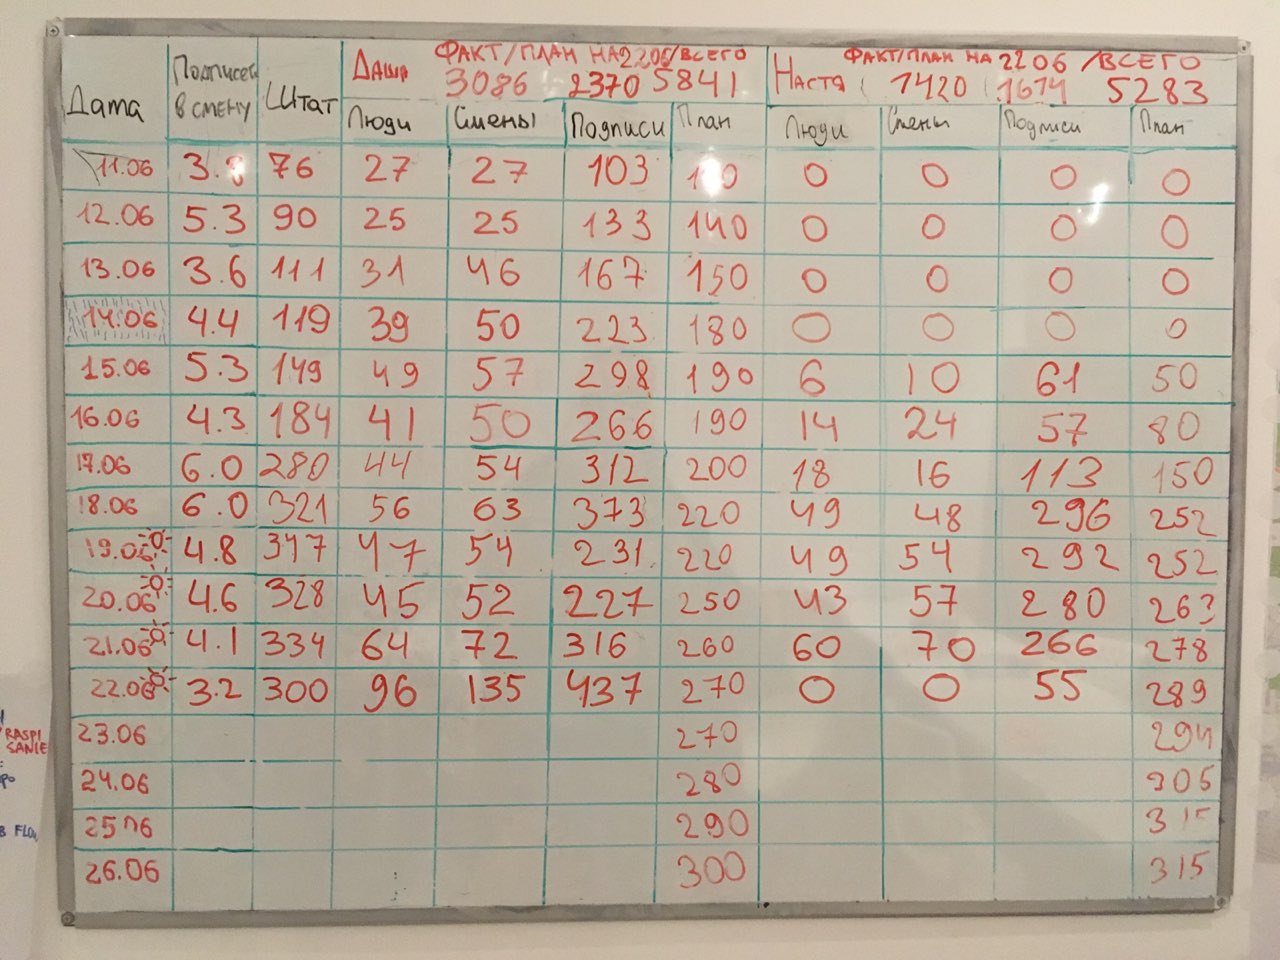 ФАКТ/ПЛАН НА 2206/ВСЕГО
ФАКТ/ПЛАН НА 2206 /ВСЕГО
Дата Подписей в смену Штат Даша 3086 2370 5841 Настя 1420 1614 5283
Люди Смены Подписи План Люди Смены Подписи План
11.06 3.8 76 27 27 103 0 0 0 0
12.06 5.3 90 25 25 133 140 0 0 0 0
13.06 3.6 111 31 46 167 150 0 0 0 0
14.06 4.4 119 39 50 223 180 0 0 0 0
15.06 5.3 149 49 57 298 190 6 10 61 50
16.06 4.3 184 41 50 266 190 14 24 57 80
17.06 6.0 280 44 54 312 200 18 16 113 150
18.06 6.0 321 56 63 373 220 49 48 296 252
19.06 4.8 347 47 54 231 220 49 54 292 252
20.06 4.6 328 45 52 227 250 43 57 280 263
21.06 4.1 334 64 72 316 260 60 70 266 278
22.06 3.2 300 96 135 437 270 0 0 55 289
23.06 270 294
24.06 280 305
25.06 290 315
26.06 300 315
RASPI
SANIE